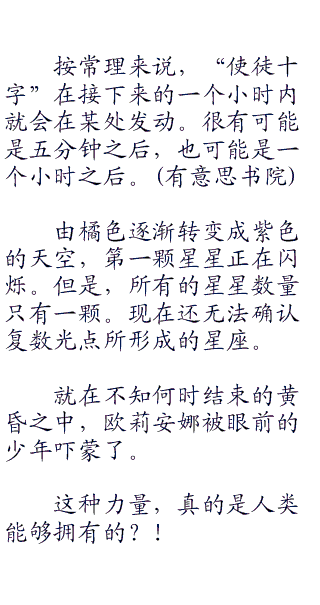 按常理来说，“使徒十
字”在接下来的一个小时内
就会在某处发动。很有可能
是五分钟之后，也可能是一
个小时之后。(有意思书院)
由橘色逐渐转变成紫色
的天空，第一颗星星正在闪
烁。但是，所有的星星数量
只有一颗。现在还无法确认
复数光点所形成的星座。
就在不知何时结束的黄
昏之中，欧莉安娜被眼前的
少年吓蒙了。
这种力量，真的是人类
能够拥有的？！